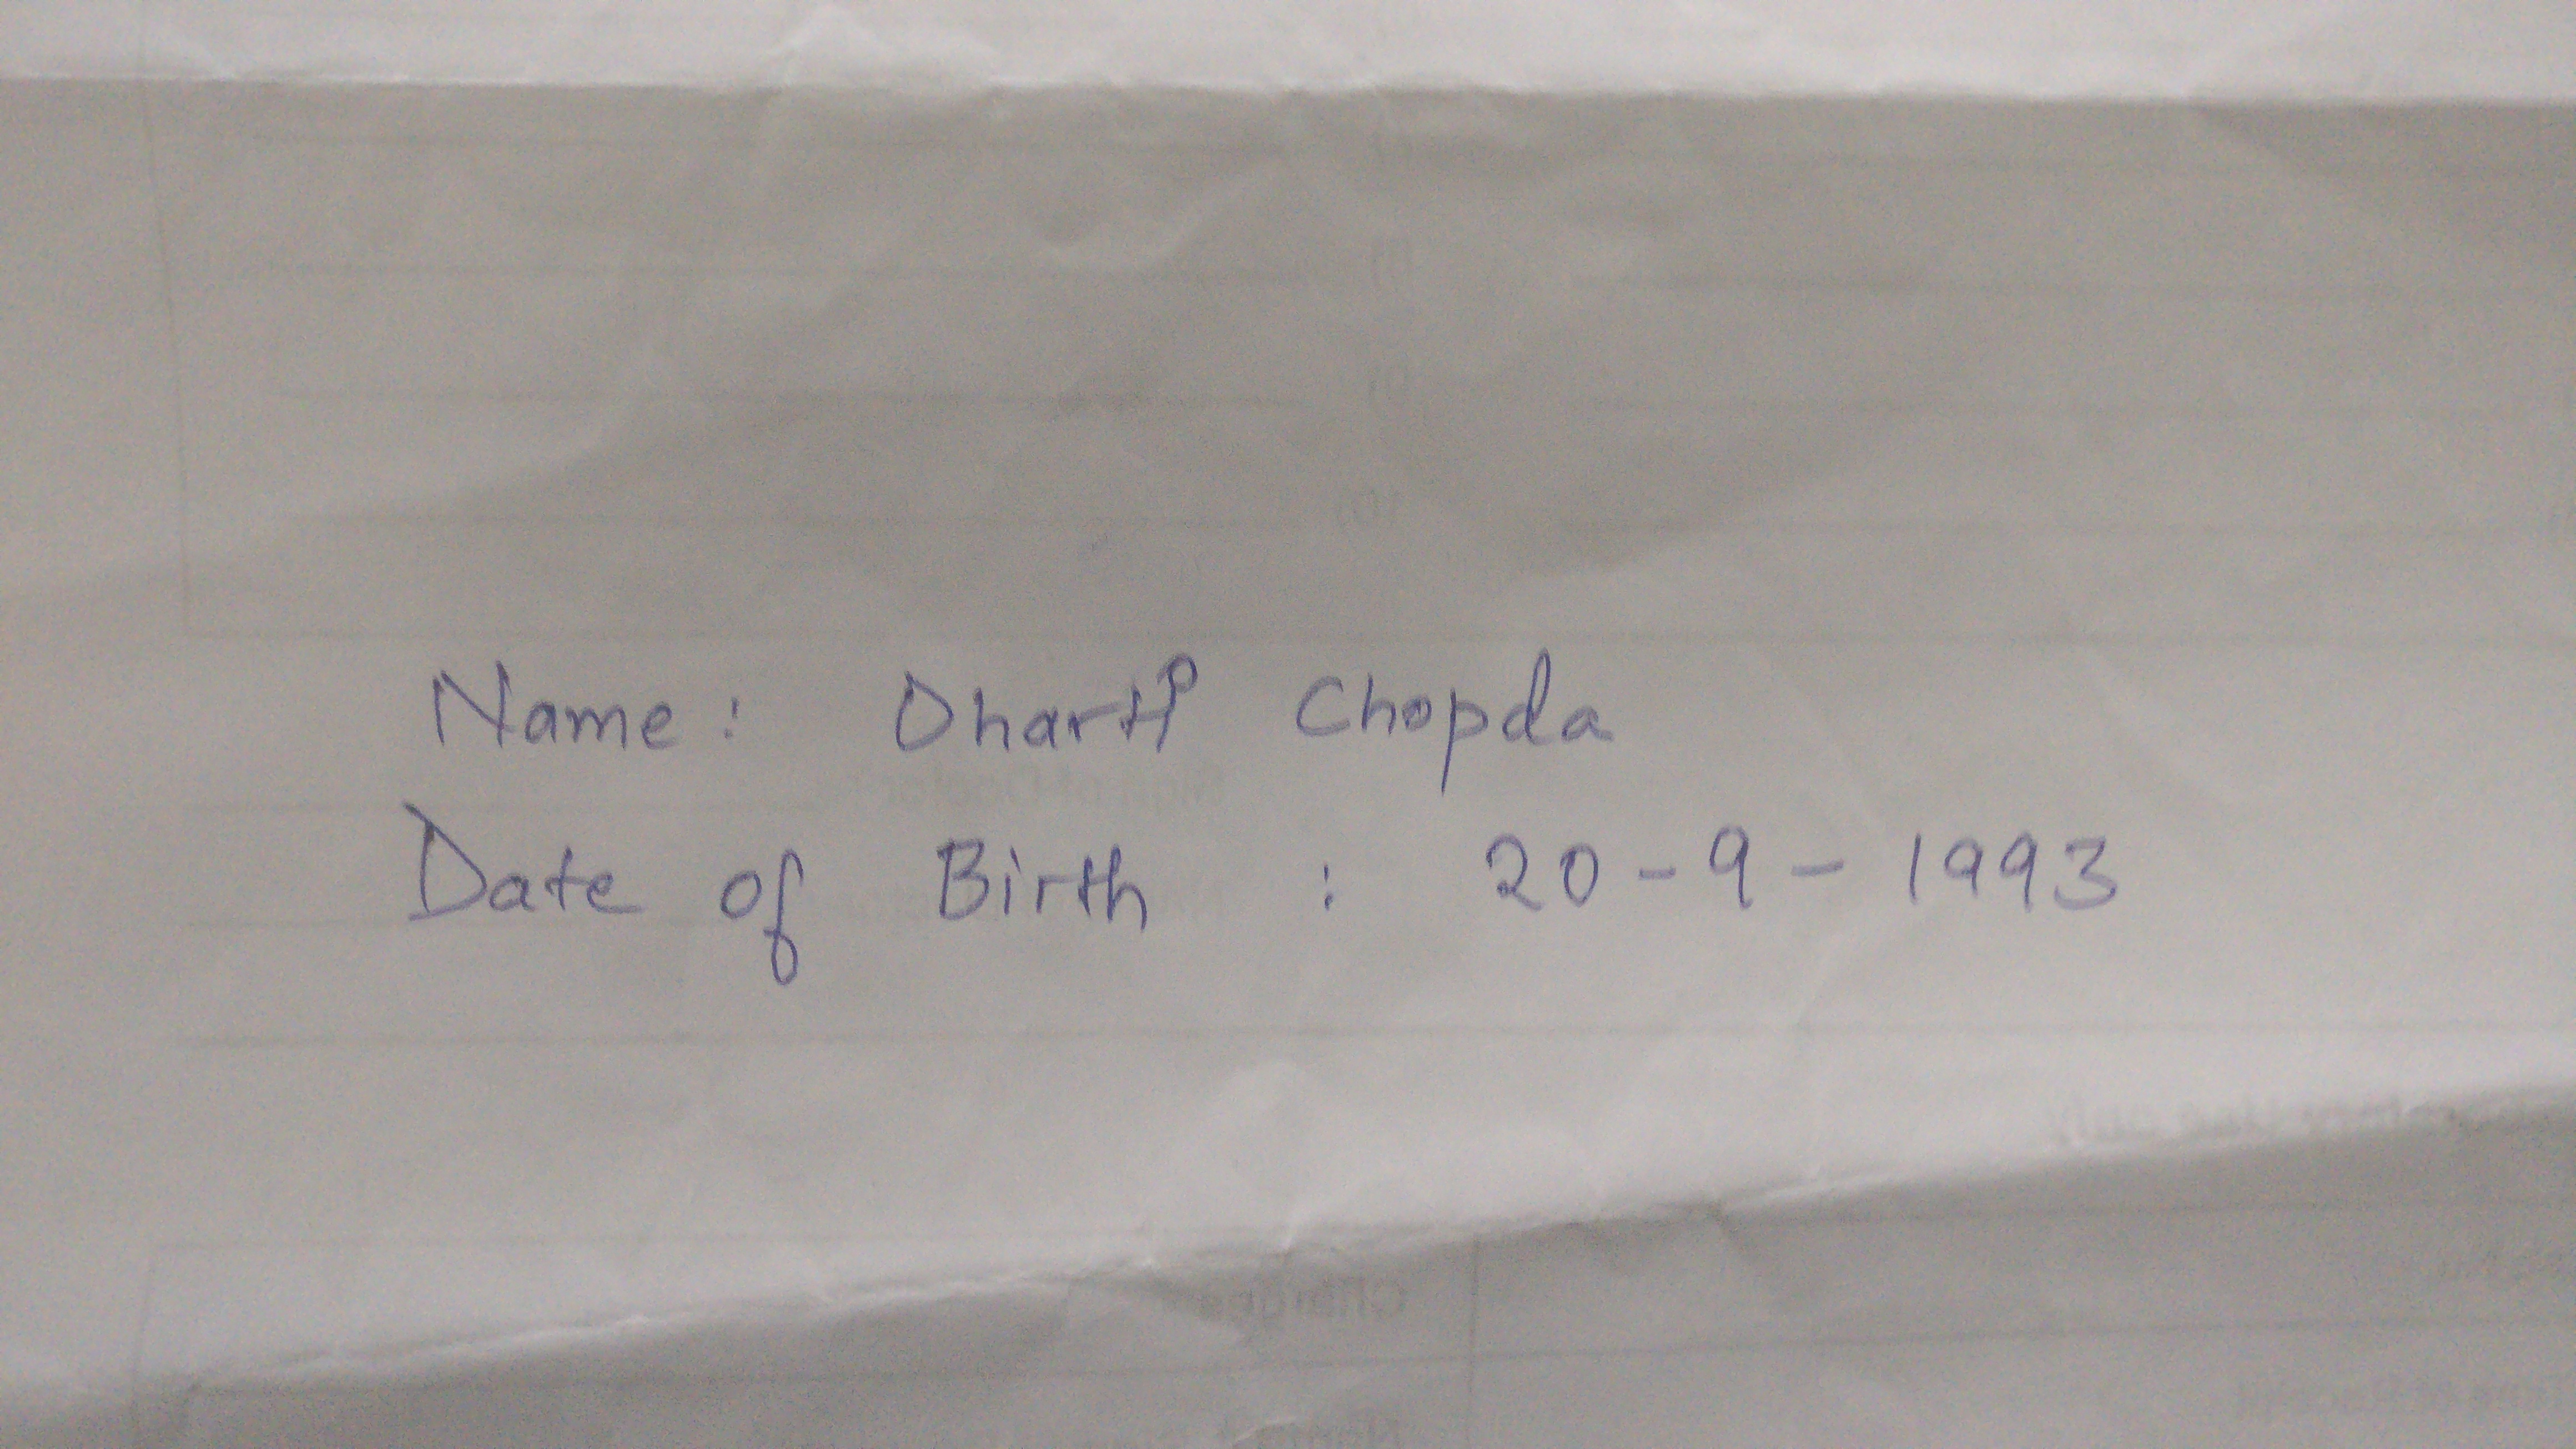 Name : Dharti Chopda
Date of Birth : 20 - 9 - 1993